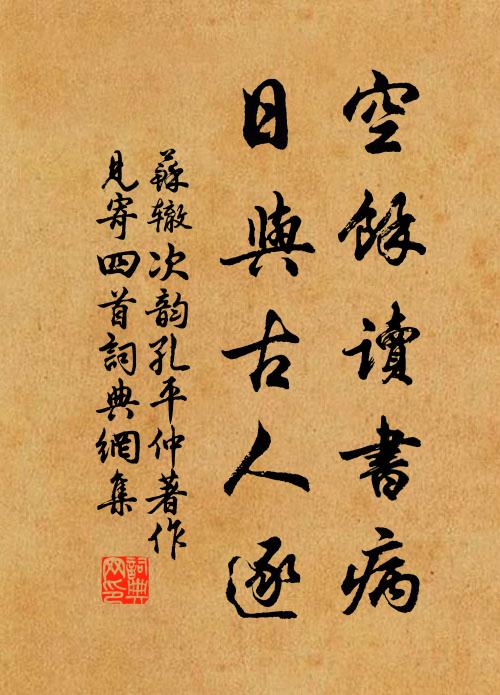 空餘讀書病
日與古人逐
蘇辙次韵孔平仲著作
見寄四首詞典網集
詞典
网印